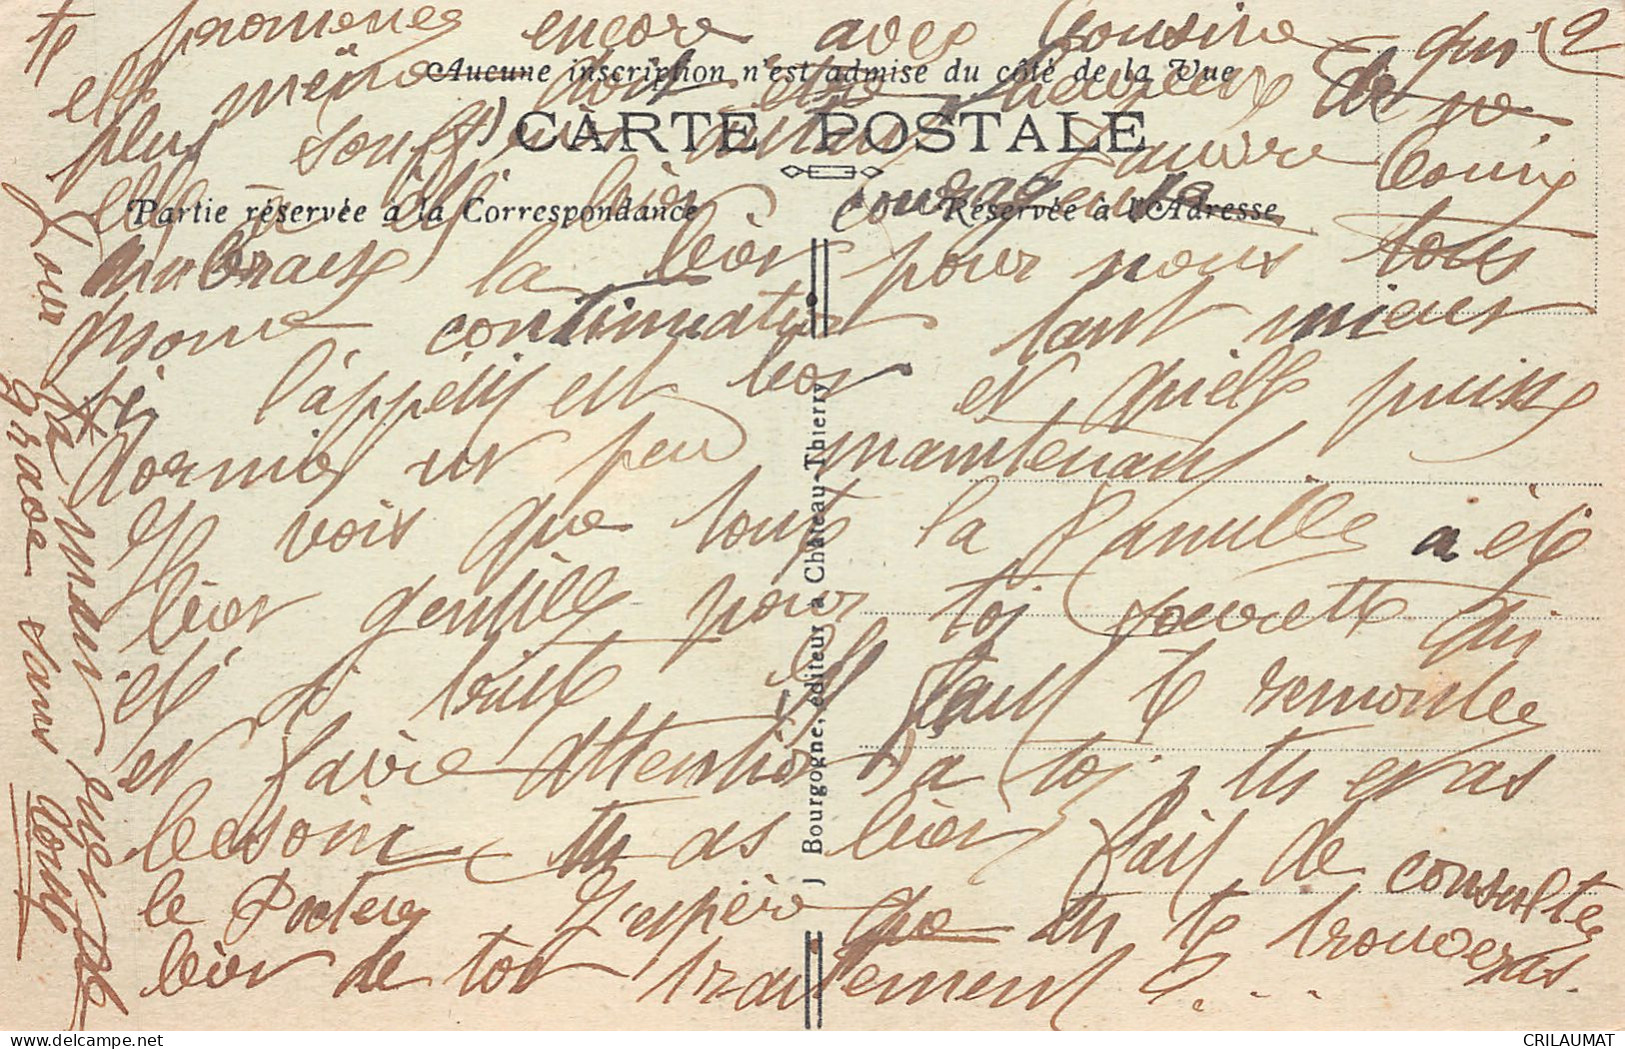 te promener encore avec Cousine qui 2
elle même doit être heureuse de ne
Aucune inscription n'est admise du côté de la Vue
plus souffrir Pauvre Cousine
CARTE POSTALE
Partie réservée à la Correspondance
Réservée à l'Adresse
embrasse la bien pour nous tous
continuation tant mieux
si l'appétit est bon et qu'elle puisse
dormir un peu maintenant.
Je vois que toute la famille a été
bien gentille pour toi sœurette qui
été si triste il faut te remonter
et faire attention à toi, tu en as
besoin, tu as bien fait de consulter
le Docteur J'espère que tu te trouveras
bien de ton traitement ? . . .
J Bourgogne, éditeur à Château-Thierry
Pour ta main
grace sans
CRILAUMAT